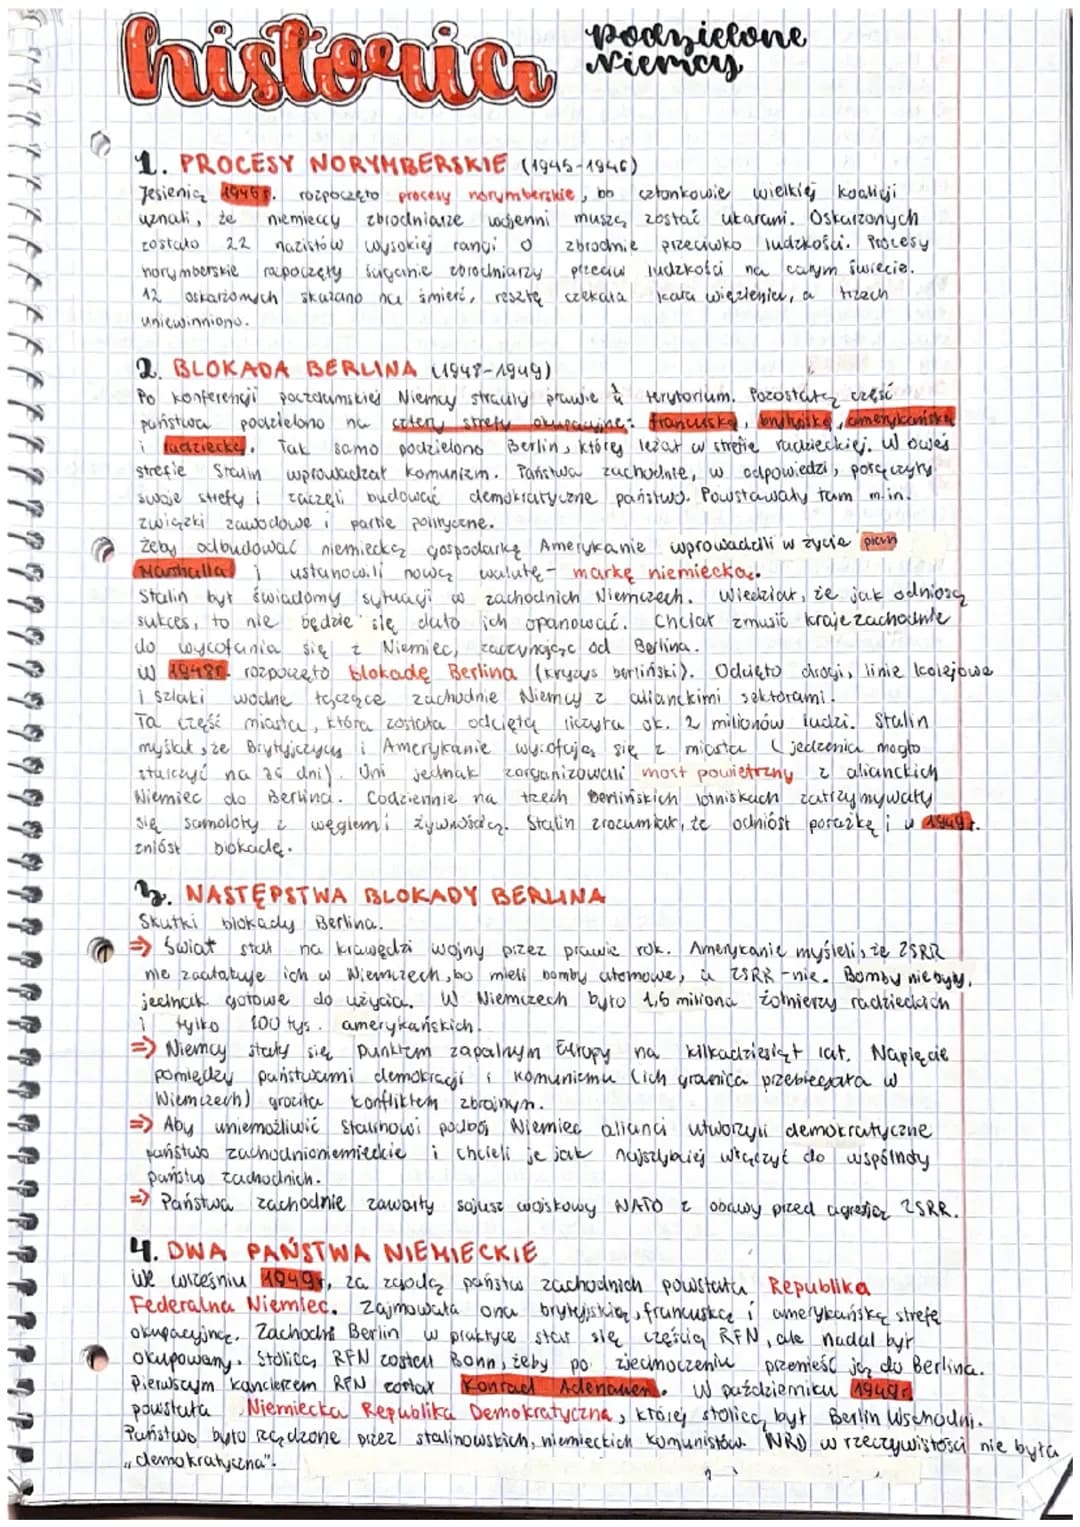 historia
Podzielone
Niemcy
1. PROCESY NORYMBERSKIE (1945-1946)
Jesienią 1945r. rozpoczęto procesy norymberskie, bo członkowie wielkiej koalicji
uznali, że niemieccy zbrodniarze wojenni muszą zostać ukarani. Oskarżonych
zostało 22 nazistów wysokiej rangi o zbrodnie przeciwko ludzkości. Procesy
norymberskie rozpoczęły ściganie zbrodniarzy przeciw ludzkości na całym świecie.
12 oskarżonych skazano na śmierć, resztę czekała kara więzienia, a trzech
uniewinniono.
2. BLOKADA BERLINA (1948-1949)
Po konferencji poczdamskiej Niemcy straciły prawie ¼ terytorium. Pozostałą część
państwa podzielono na cztery strefy okupacyjne: francuską, brytyjską, amerykańską
i radziecką. Tak samo podzielono Berlin, który leżał w strefie radzieckiej. W owej
strefie Stalin wprowadzał komunizm. Państwa zachodnie, w odpowiedzi, połączyły
swoje strefy i zaczęli budować demokratyczne państwo. Powstawały tam m.in.
związki zawodowe i partie polityczne.
Żeby odbudować niemiecką gospodarkę Amerykanie wprowadzili w życie plan
Marshalla i ustanowili nową walutę - markę niemiecką.
Stalin był świadomy sytuacji w zachodnich Niemczech. Wiedział, że jak odniosą
sukces, to nie będzie się dało ich opanować. Chciał zmusić kraje zachodnie
do wycofania się z Niemiec, zaczynając od Berlina.
W 1948r. rozpoczęto blokadę Berlina (kryzys berliński). Odcięto drogi, linie kolejowe
i szlaki wodne łączące zachodnie Niemcy z alianckimi sektorami.
Ta część miasta, która została odcięta liczyła ok. 2 milionów ludzi. Stalin
myślał, że Brytyjczycy i Amerykanie wycofają się z miasta (jedzenia mogło
starczyć na 36 dni). Oni jednak zorganizowali most powietrzny z alianckich
Niemiec do Berlina. Codziennie na trzech berlińskich lotniskach zatrzymywały
się samoloty z węglem i żywnością. Stalin zrozumiał, że odniósł porażkę i w 1949r.
zniósł blokadę.
3. NASTĘPSTWA BLOKADY BERLINA
Skutki blokady Berlina.
⇒ Świat stał na krawędzi wojny przez prawie rok. Amerykanie myśleli, że ZSRR
nie zaatakuje ich w Niemczech, bo mieli bomby atomowe, a ZSRR - nie. Bomby nie były,
jednak gotowe do użycia. W Niemczech było 1,5 miliona żołnierzy radzieckich
i tylko 100 tys. amerykańskich.
⇒ Niemcy stały się punktem zapalnym Europy na kilkadziesiąt lat. Napięcie
pomiędzy państwami demokracji i komunizmu (ich granica przebiegała w
Niemczech) groziła konfliktem zbrojnym.
⇒ Aby uniemożliwić Stalinowi podbój Niemiec alianci utworzyli demokratyczne
państwo zachodnioniemieckie i chcieli je jak najszybciej włączyć do wspólnoty
państw zachodnich.
⇒ Państwa zachodnie zawarły sojusz wojskowy NATO z obawy przed agresją ZSRR.
4. DWA PAŃSTWA NIEMIECKIE
We wrześniu 1949r, za zgodą państw zachodnich powstała Republika
Federalna Niemiec. Zajmowała ona brytyjską, francuską i amerykańską strefę
okupacyjną. Zachodni Berlin w praktyce stał się częścią RFN, ale nadal był
okupowany. Stolicą RFN został Bonn, żeby po zjednoczeniu przenieść ją do Berlina.
Pierwszym kanclerzem RFN został Konrad Adenauer. W październiku 1949r
powstała Niemiecka Republika Demokratyczna, której stolicą był Berlin Wschodni.
Państwo było rządzone przez stalinowskich, niemieckich komunistów. NRD w rzeczywistości nie była
„demokratyczna".